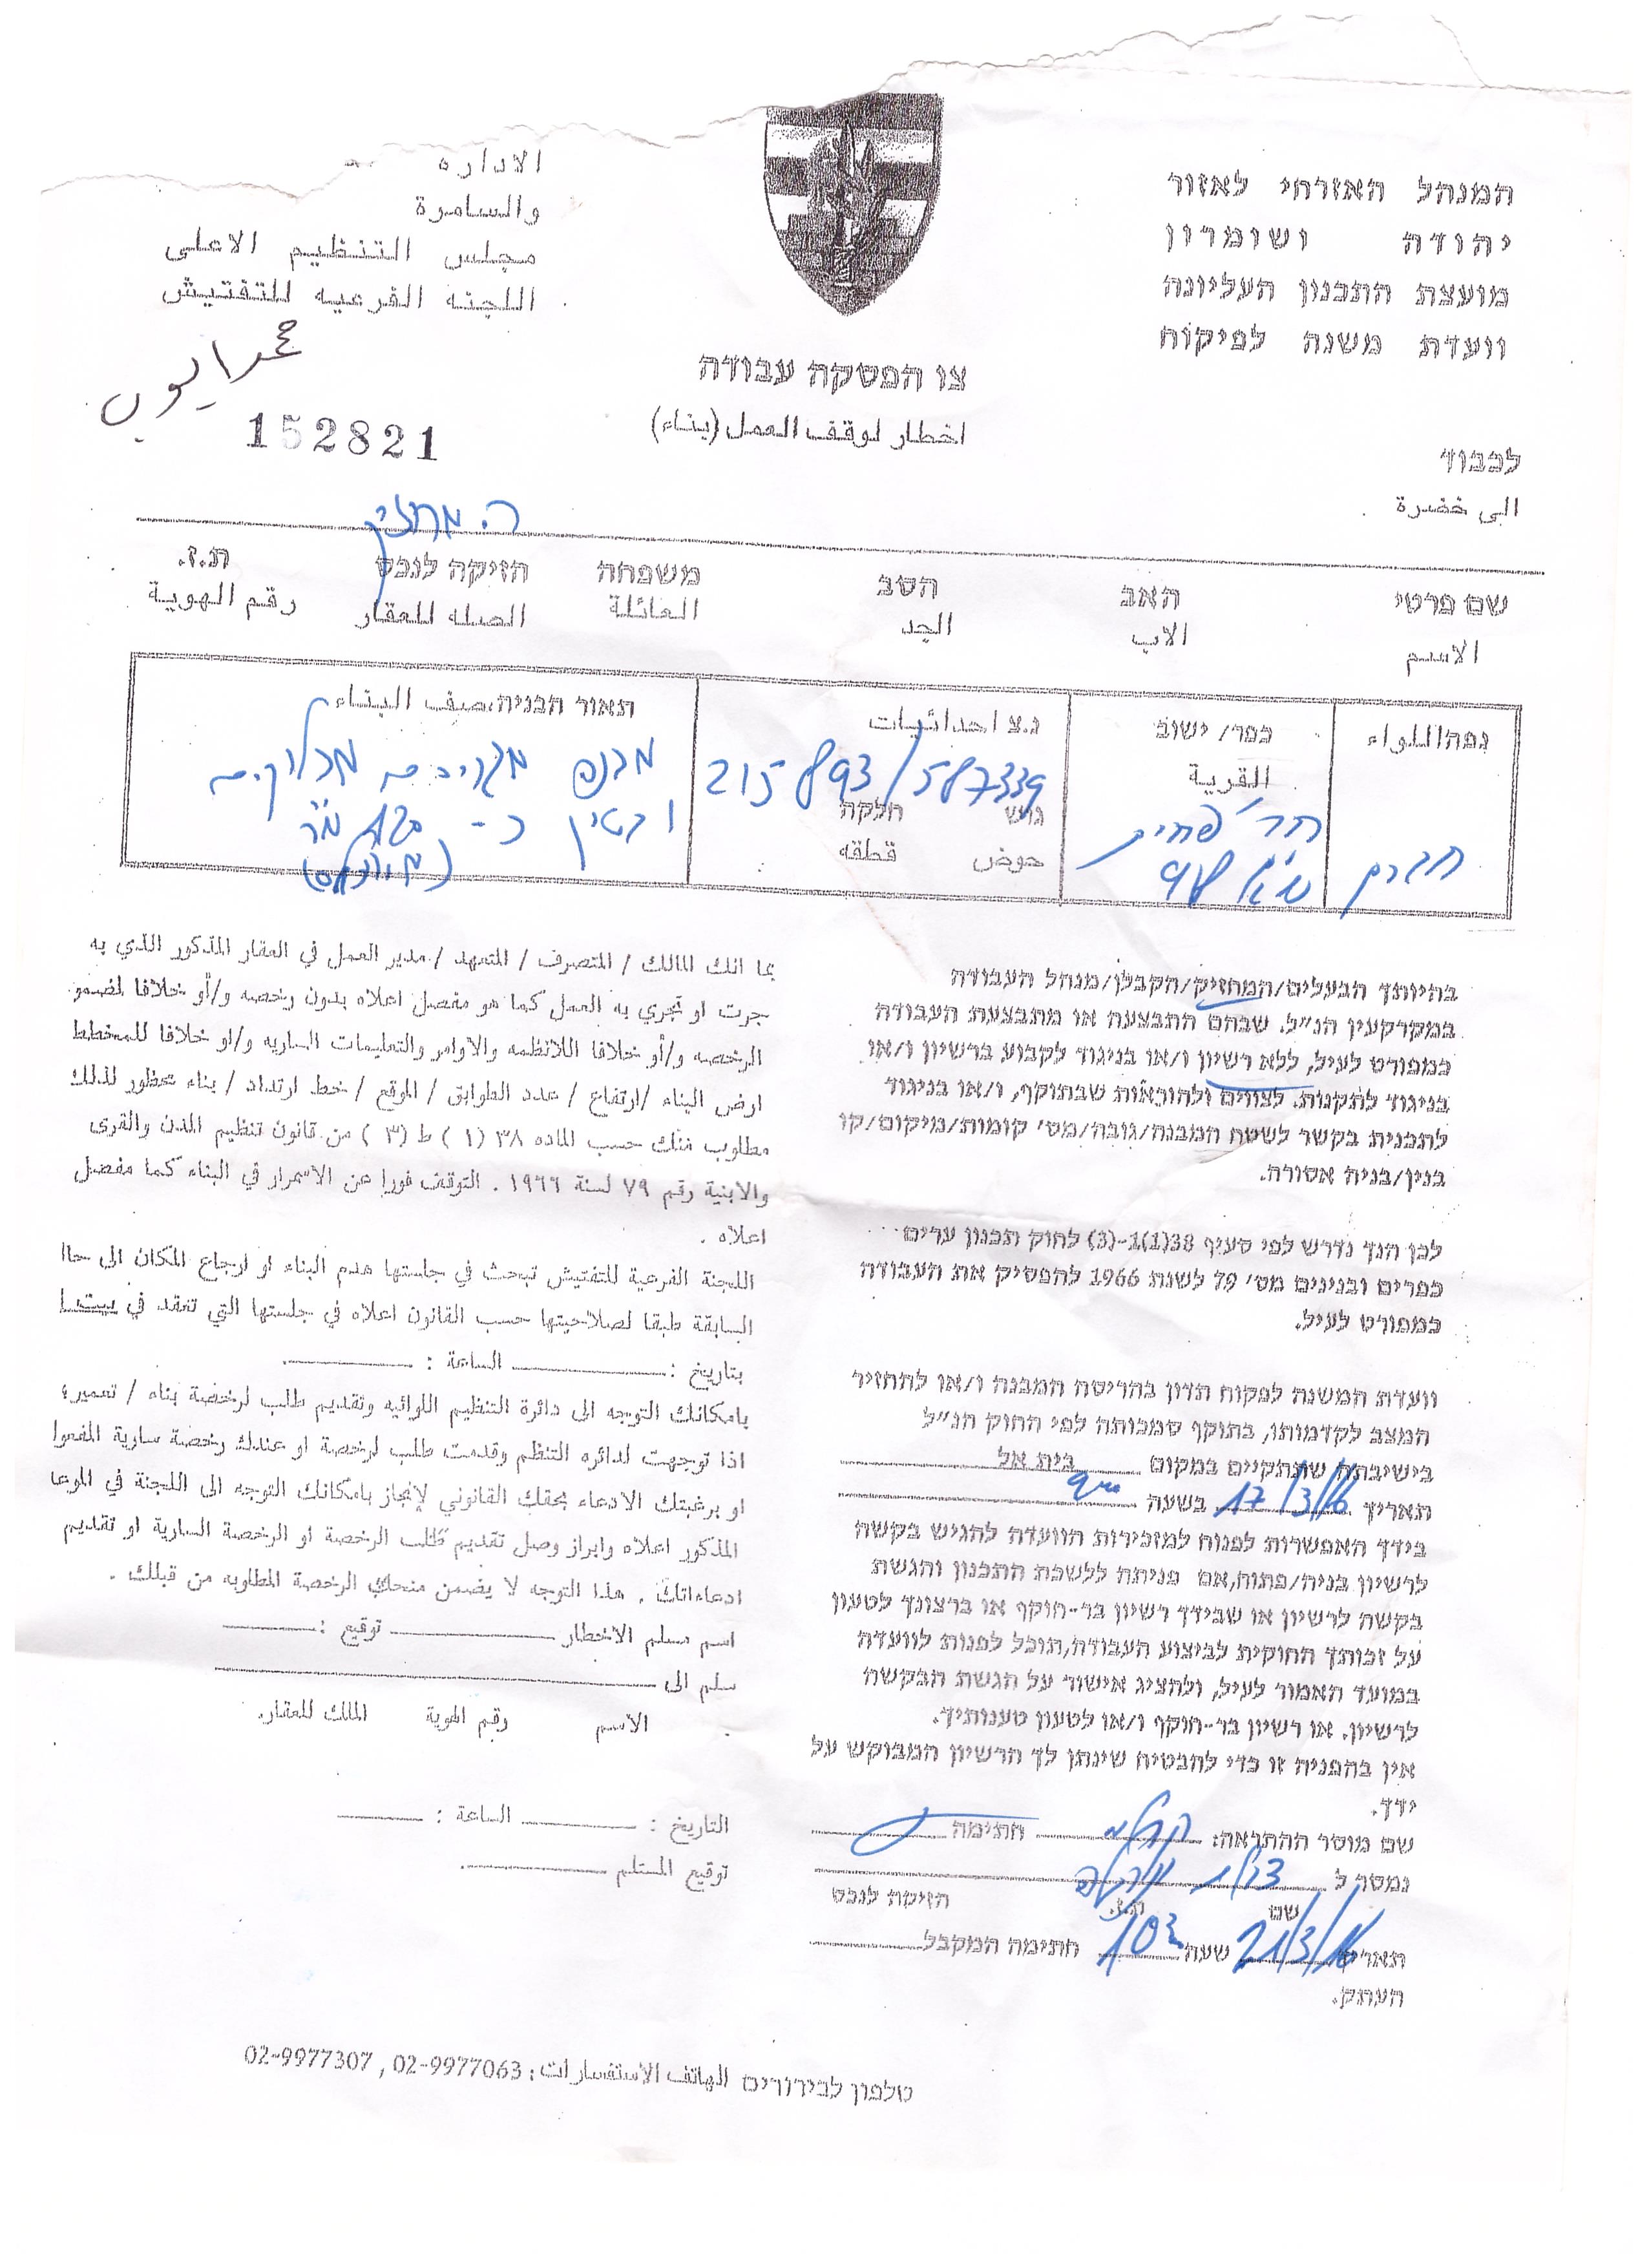 המנהל האזרחי לאזור
יהודה ושומרון
מועצת התכנון העליונה
וועדת משנה לפיקוח
الاداره
والسامرة
مجلس التنظيم الاعلى
اللجنه الفرعيه للتفتيش
צו הפסקה עבודה
اخطار لوقف العمل (بناء)
152821
לכבוד
الى حضرة
ה. מחזיק
שם פרטי האב הסב משפחה הזיקה לנכס ת.ז.
الاسم الاب الجد العائلة الصله للعقار رقم الهوية
נפה/اللواء
כפר/ ישוב
القرية
נ.צ احداثيات
215893/587339
גוש חלקה
حوض قطقه
תאור הבניה،صيف البناء
בהיותך הבעלים/המחזיק/הקבלן/מנהל העבודה
במקרקעין הנ"ל. שבהם התבצעה או מתבצעת העבודה
כמפורט לעיל, ללא רשיון ו/או בניגוד לקבוע ברשיון ו/או
בניגוד לתקנות. לצווים ולהוראות שבתוקף, ו/או בניגוד
לתכנית בקשר לשטח המבנה/גובה/מס' קומות/מיקום/קו
בנין/בניה אסורה.
לכן הנך נדרש לפי סעיף 38(1)1-(3) לחוק תכנון ערים
כפרים ובנינים מס' 79 לשנת 1966 להפסיק את העבודה
כמפורט לעיל.
וועדת המשנה לפקוח תדון בהריסת המבנה ו/או להחזיר
המצב לקדמותו, בתוקף סמכותה לפי החוק הנ"ל
בישיבתה שתתקיים במקום בית אל
תאריך 17/3/16 בשעה
בידך האפשרות לפנות למזכירות הוועדה להגיש בקשה
לרשיון בניה/פתוח,אם פניתה ללשכת התכנון והגשת
בקשה לרשיון או שבידך רשיון בר-תוקף או ברצונך לטעון
על זכותך החוקית לביצוע העבודה,תוכל לפנות לוועדה
במועד האמור לעיל, ולהציג אישור על הגשת הבקשה
לרשיון. או רשיון בר-תוקף ו/או לטעון טענותיך.
אין בהפניה זו כדי להבטיח שינתן לך הרשיון המבוקש על
ידך.
שם מוסר ההתראה: חתימה
נמסר ל
שם ת.ז. הזיקה לנכס
תאריך 21/3/16 שעה חתימה המקבל
העתק.
بما انك المالك / المتصرف / المتعهد / مدير العمل في العقار المذكور الذي به
جرت او تجري به العمل كما هو مفصل اعلاه بدون رخصه و/أو خلافا لمضمو
الرخصه و/أو خلافا اللانظمه والاوامر والتعليمات الساريه و/او خلافا للمخطط
ارض البناء /ارتفاع / عدد الطوابق / الموقع / خط ارتداد / بناء محظور لذلك
مطلوب منك حسب الماده ٣٨ (١ ) ط (٣ ) من قانون تنظيم المدن والقرى
والابنية رقم ٧٩ لسنة ١٩٦٦ . التوقف فورا عن الاستمرار في البناء كما مفصل
اعلاه .
اللجنة الفرعية للتفتيش تبحث في جلستها هدم البناء او ارجاع المكان الى حاا
السابقة طبقا لصلاحيتها حسب القانون اعلاه في جلستها التي تعقد في بيت ا
بتاريخ : الساعة : .
بامكانك التوجه الى دائرة التنظيم اللوائيه وتقديم طلب لرخصة بناء / تعمير؛
اذا توجهت لدائره التنظم وقدمت طلب لرخصة او عندك رخصة سارية المفعوا
او برغبتك الادعاء بحقك القانوني لإنجاز بامكانك التوجه الى اللجنة في الموعا
المذكور اعلاه وابراز وصل تقديم طلب الرخصة او الرخصة السارية او تقديم
ادعاءاتك . هذا التوجه لا يضمن منحك الرخصة المطلوبه من قبلك .
اسم مسلم الاخطار توقيع :
سلم الى
الاسم رقم الهوية المالك للعقار.
التاريخ : الساعة :
توقيع المستلم .
טלפון לבירורים الهاتف الاستفسارات : 02-9977063 , 02-9977307